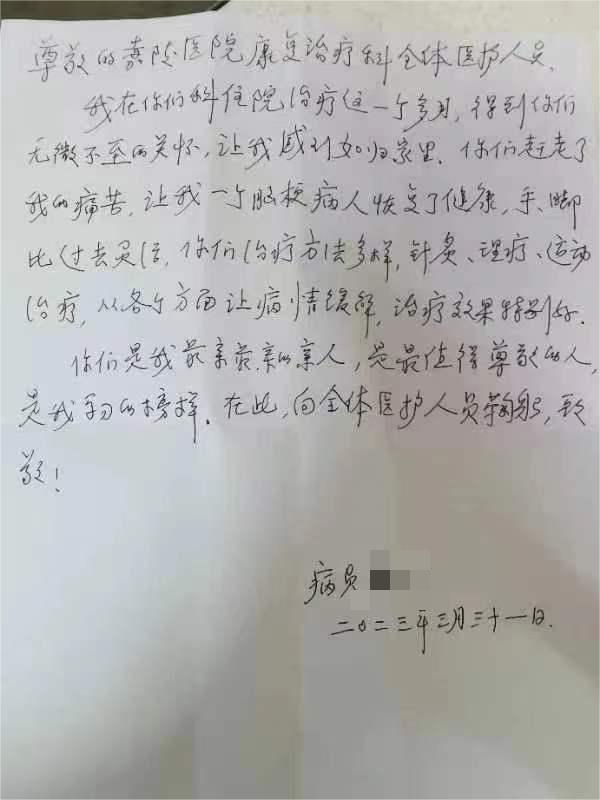 尊敬的嘉陵医院康复治疗科全体医护人员、
我在你们科住院治疗住一个多月，得到你们
无微不至的关怀，让我感到如归家里、你们赶走了
我的痛苦，让我一个脑梗病人恢复了健康，手、脚
比过去灵活，你们治疗方法多样，针灸、理疗、运动
治疗，从各个方面让病情缓解，治疗效果特别好.
你们是我最亲最亲的亲人，是最值得尊敬的人，
是我学习的榜样。在此，向全体医护人员鞠躬，致
敬！
病员
二〇二三年三月三十一日.